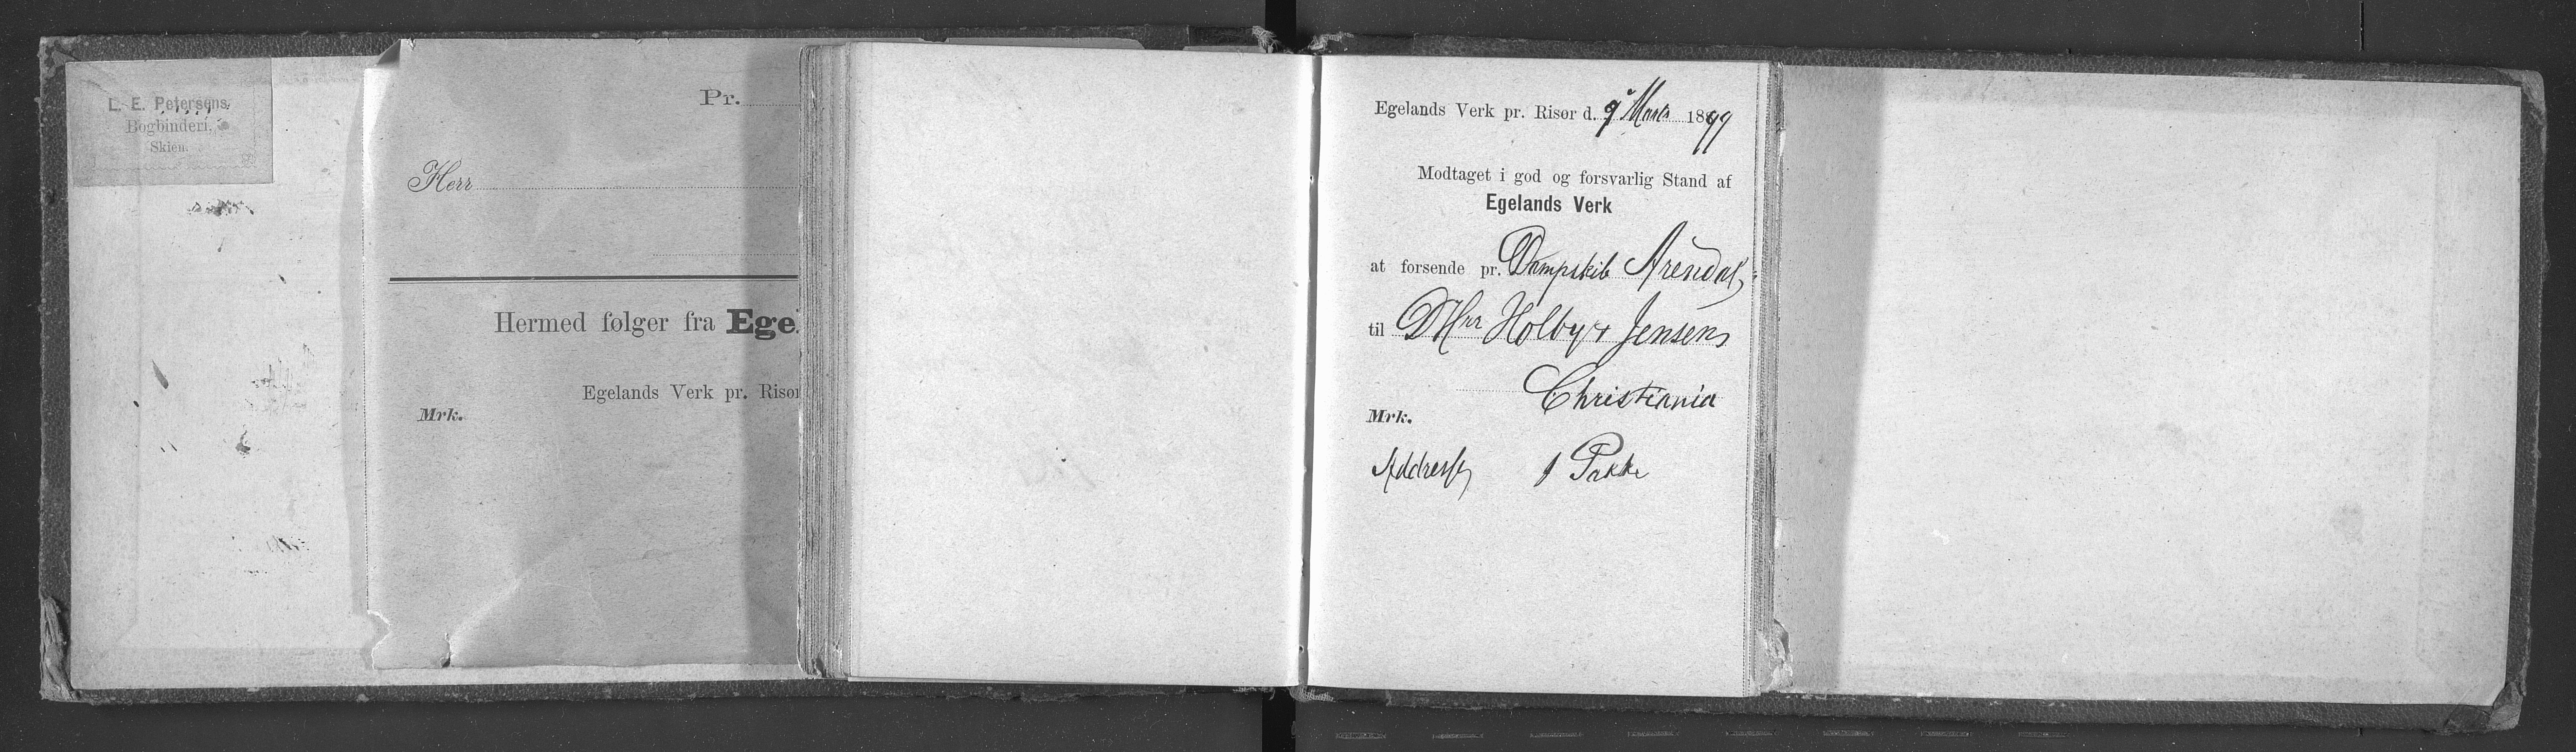 L. E. Petersens
Bogbinderi.
Skien.
Pr.
Herr
Hermed følger fra Ege
Egelands Verk pr. Risør
Mrk.
Egelands Verk pr. Risør d. 9 Marts 1899
Modtaget i god og forsvarlig Stand af
Egelands Verk
at forsende pr. Dampskib Arendal,
til DHrr Holby & Jensen,
Christiania
Mrk.
Addresse, 1 Pakke